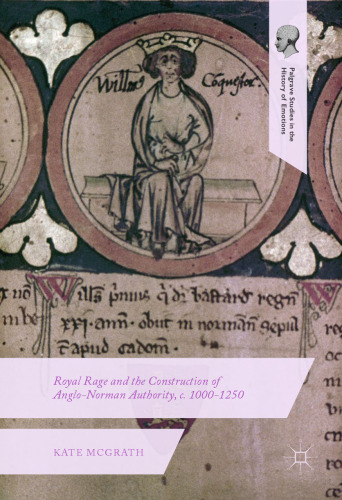 Palgrave Studies in the
History of Emotions
Willms Conquestor.
Wills p̃mus q̃ d̃r bastard regñ
xxi. annꝰ. obiit in normañ sepul
apud cadom̃.
Royal Rage and the Construction of
Anglo-Norman Authority, c. 1000-1250
KATE MCGRATH